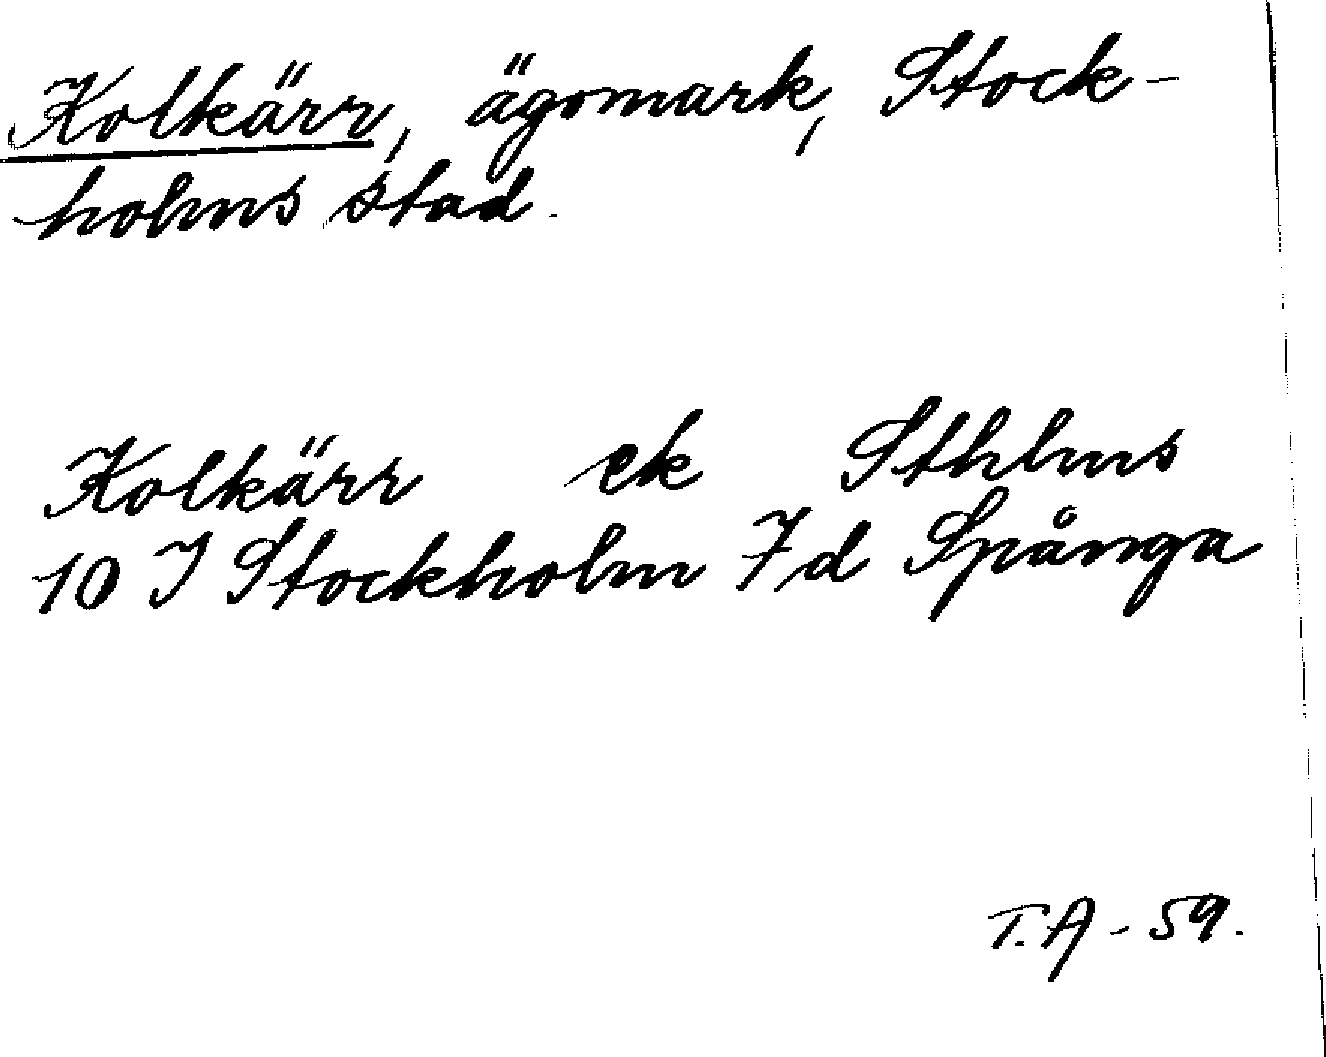 Kolkärr, ägomark, Stock-
holms stad.
Kolkärr ek Sthlms
10 I Stockholm 7d Spånga
T.A - 59.